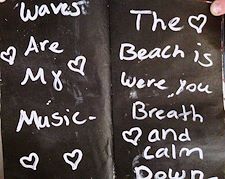 Waves
Are
My
Music-
The
Beach is
were you
Breath
and
calm
Down-